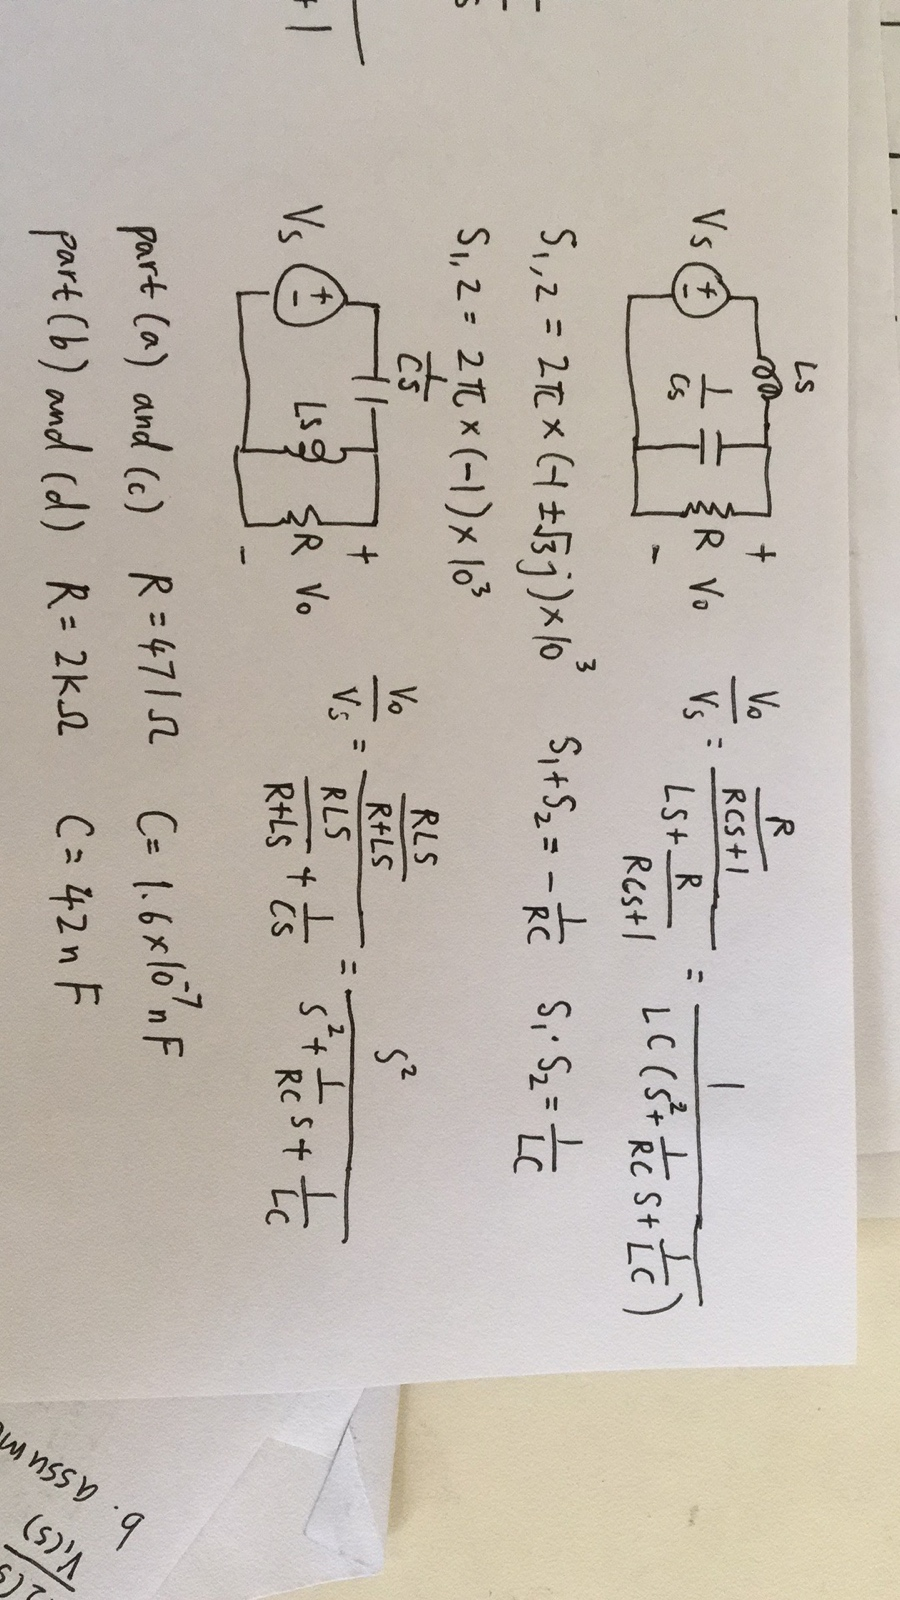 LS
Vs + - 1/CS R Vo + -
Vo/Vs = (R/(RCS+1))/(LS + R/(RCS+1)) = 1/(LC(S² + 1/RC S + 1/LC))
S₁,₂ = 2π × (-1 ± √3 j) × 10³ S₁+S₂ = - 1/RC S₁·S₂ = 1/LC
S₁,₂ = 2π × (-1) × 10³
1/CS
Vs + - LS R Vo + -
Vo/Vs = (RLS/(R+LS))/(RLS/(R+LS) + 1/CS) = S²/(S² + 1/RC S + 1/LC)
part (a) and (c) R = 471Ω C = 1.6×10⁻⁷ nF
part (b) and (d) R = 2kΩ C = 42nF
+1
b. assum
V₁(S)